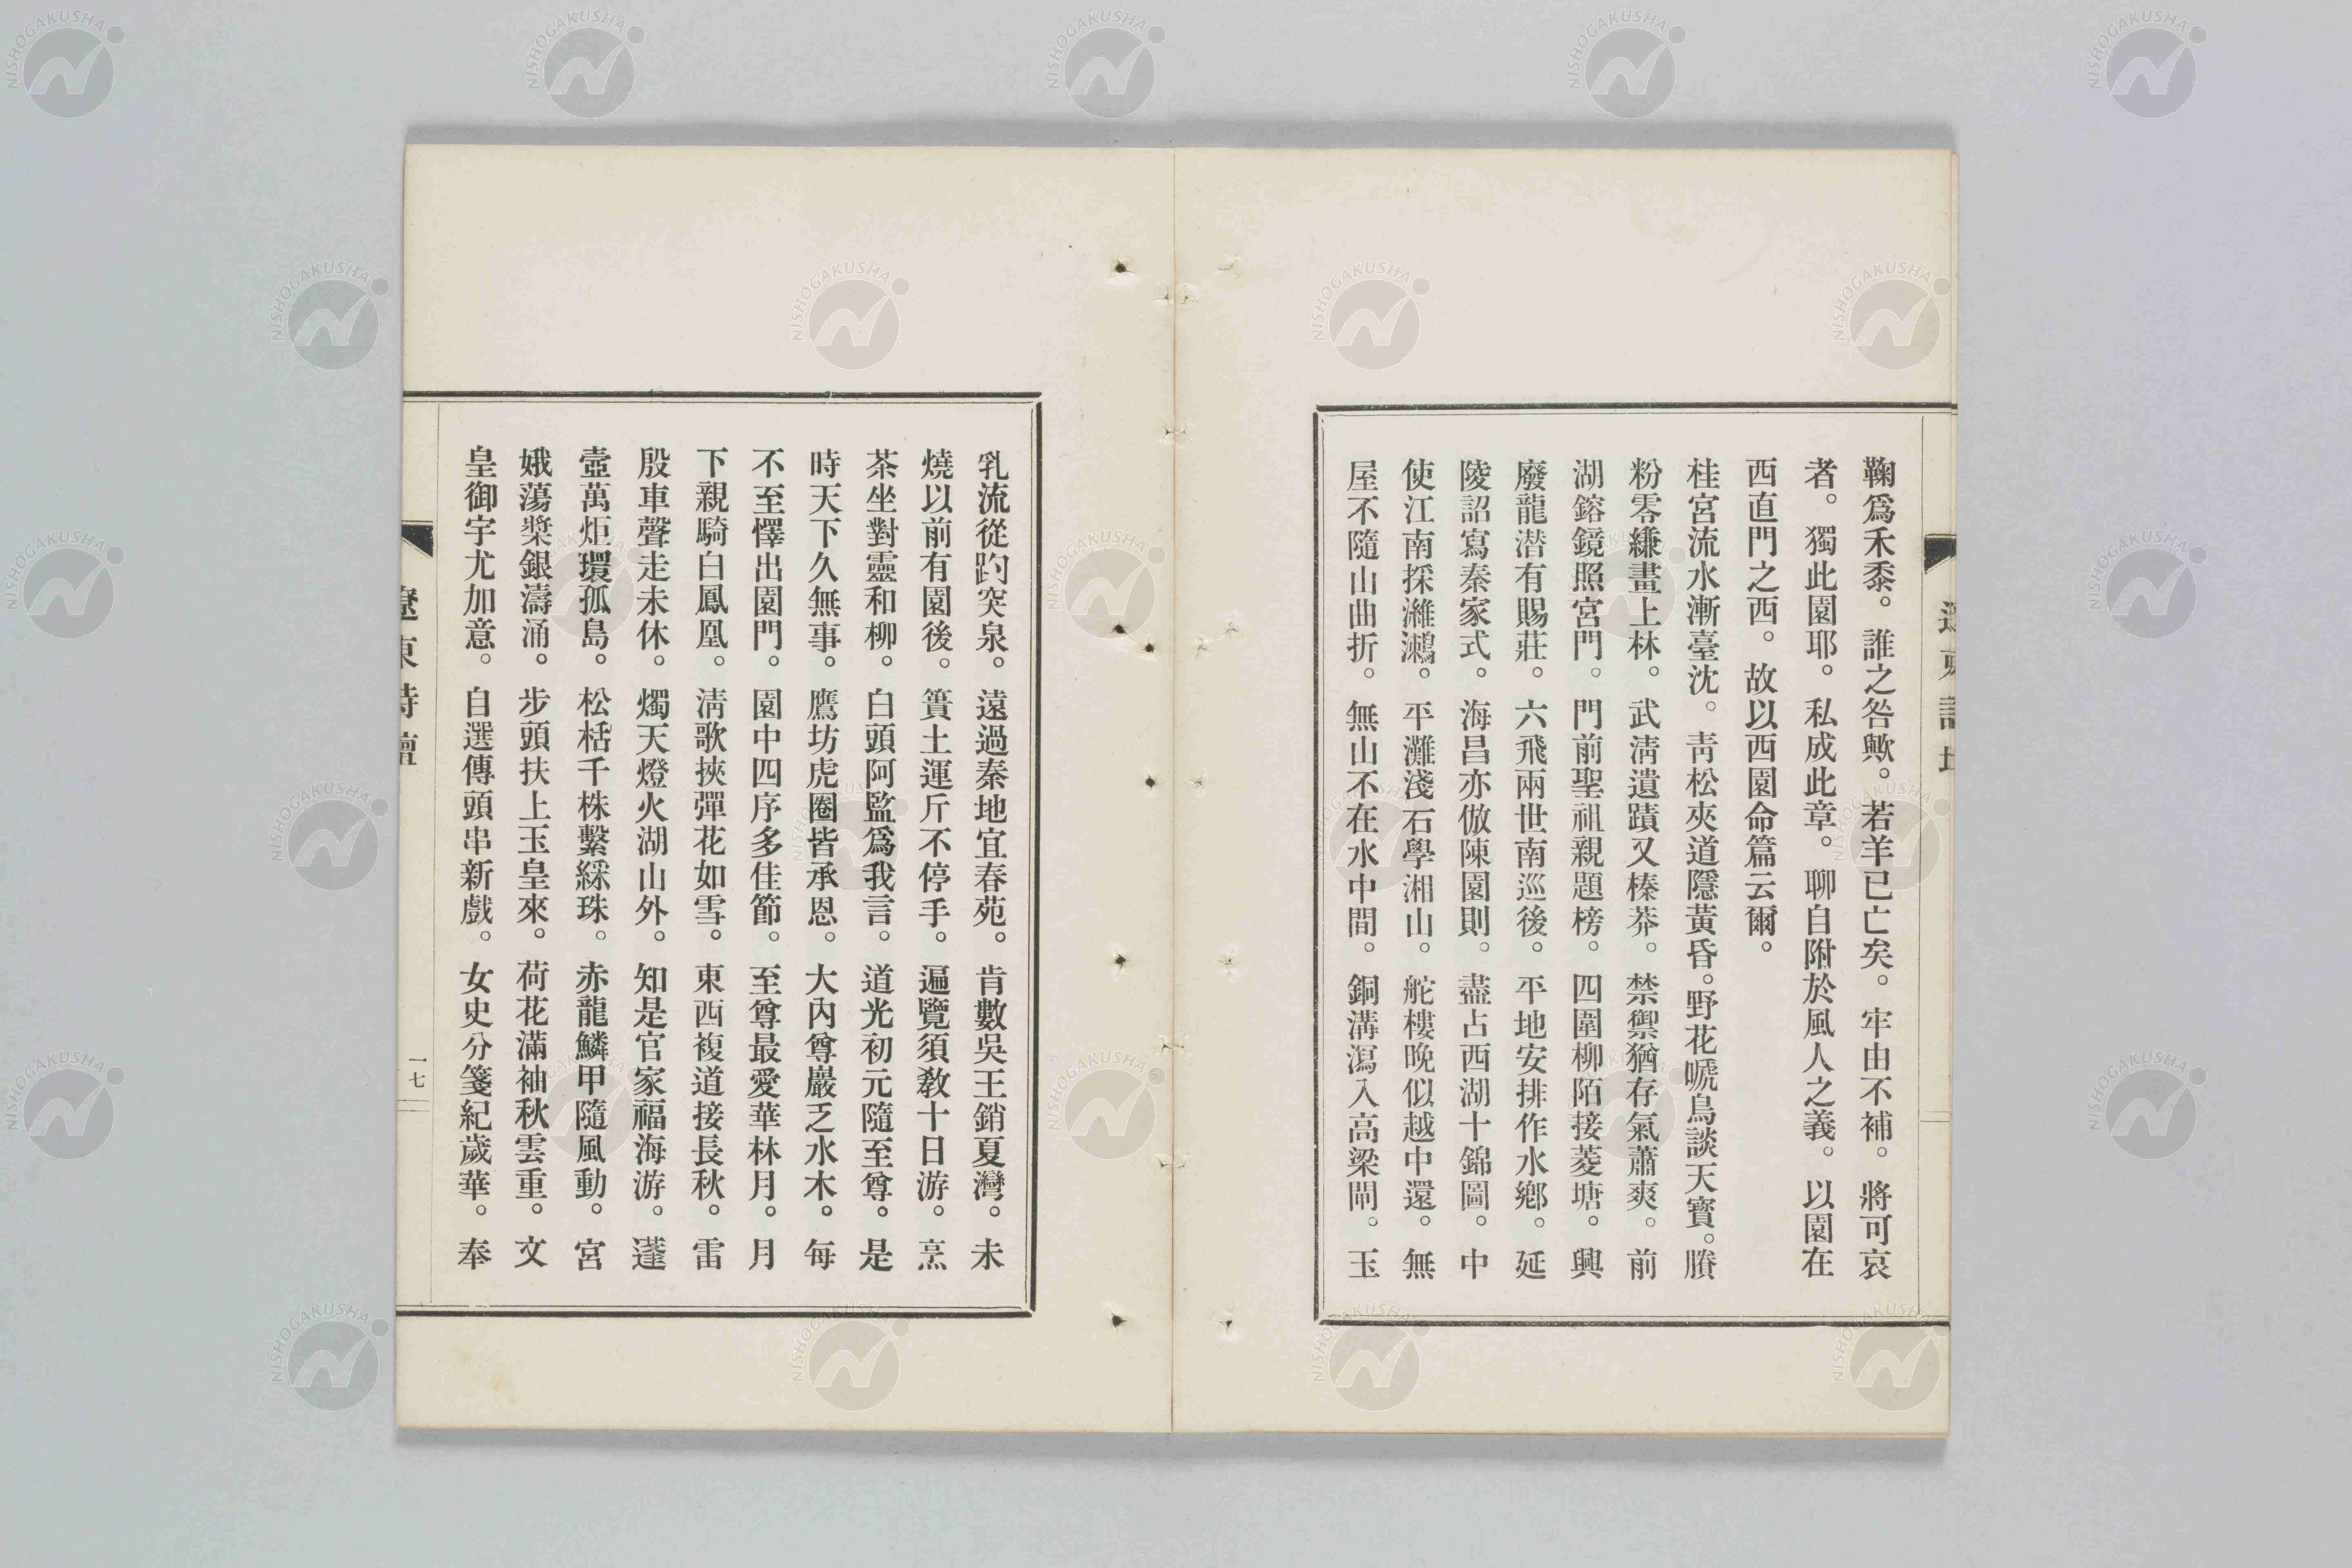 鞠爲禾黍。誰之咎歟。若羊已亡矣。牢由不補。將可哀
者。獨此園耶。私成此章。聊自附於風人之義。以園在
西直門之西。故以西園命篇云爾。
桂宮流水漸臺沈。靑松夾道隱黃昏。野花嗁鳥談天寳。賸
粉零縑畫上林。武淸遺蹟又榛莽。禁禦猶存氣蕭爽。前
湖鎔鏡照宮門。門前聖祖親題榜。四圍柳陌接菱塘。興
廢龍潛有賜莊。六飛兩世南巡後。平地安排作水鄕。延
陵詔寫秦家式。海昌亦倣陳園則。盡占西湖十錦圖。中
使江南採濰鸂。平灘淺石學湘山。舵樓晚似越中還。無
屋不隨山曲折。無山不在水中間。銅溝瀉入高梁閘。玉
乳流從趵突泉。遠過秦地宜春苑。肯數吳王銷夏灣。未
燒以前有園後。簣土運斤不停手。遍覽須敎十日游。烹
茶坐對靈和柳。白頭阿監爲我言。道光初元隨至尊。是
時天下久無事。鷹坊虎圈皆承恩。大內尊嚴乏水木。每
不至懌出園門。園中四序多佳節。至尊最愛華林月。月
下親騎白鳳凰。淸歌挾彈花如雪。東西複道接長秋。雷
殷車聲走未休。燭天燈火湖山外。知是官家福海游。蓬
壺萬炬環孤島。松栝千株繫綵珠。赤龍鱗甲隨風動。宮
娥蕩槳銀濤涌。步頭扶上玉皇來。荷花滿袖秋雲重。文
皇御宇尤加意。自選傳頭串新戲。女史分箋紀歲華。奉
遼東詩壇
一七
NISHOGAKUSHA